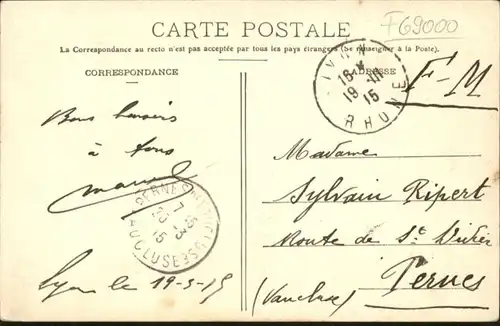 CARTE POSTALE
F69000
La Correspondance au recto n'est pas acceptée par tous les pays étrangers (Se renseigner à la Poste).
CORRESPONDANCE
ADRESSE
F-M
LYON
16
19
15
RHONE
Bons baisers
à tous
Marcel
PERNES
20
15
VAUCLUSE
Lyon le 19-3-15
Madame
Sylvain Ripert
Route de St
Pernes
(Vaucluse)